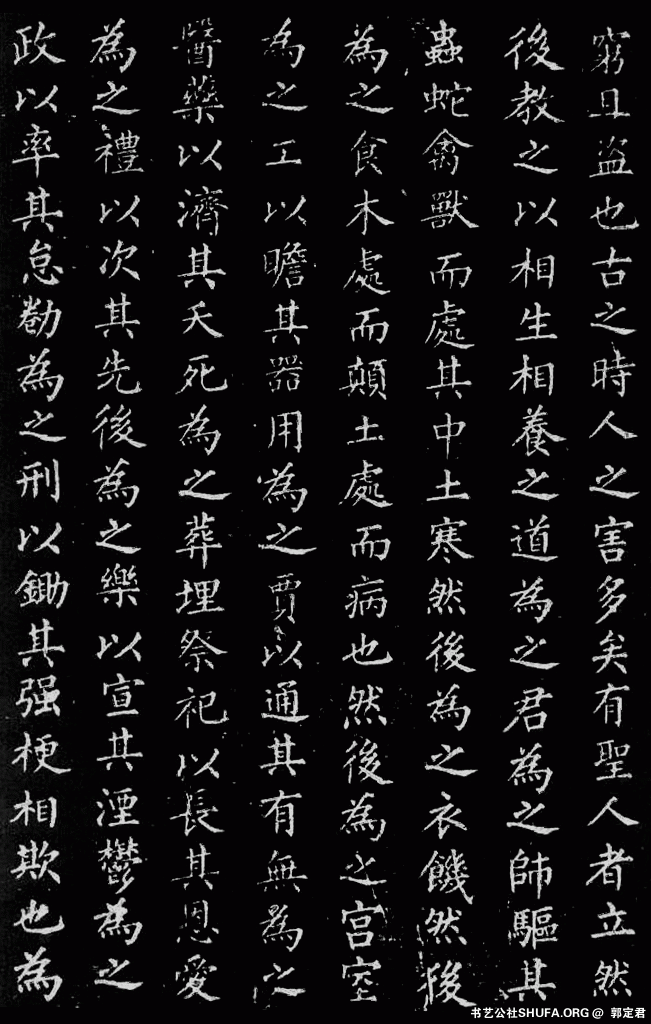 窮且盗也古之時人之害多矣有聖人者立然
後教之以相生相養之道為之君為之師驅其
蟲蛇禽獸而處其中土寒然後為之衣饑然後
為之食木處而顛土處而病也然後為之宫室
為之工以瞻其器用為之賈以通其有無為之
醫藥以濟其夭死為之葬埋祭祀以長其恩愛
為之禮以次其先後為之樂以宣其湮鬱為之
政以率其怠勌為之刑以鋤其强梗相欺也為
书艺公社SHUFA.ORG @ 郭定君